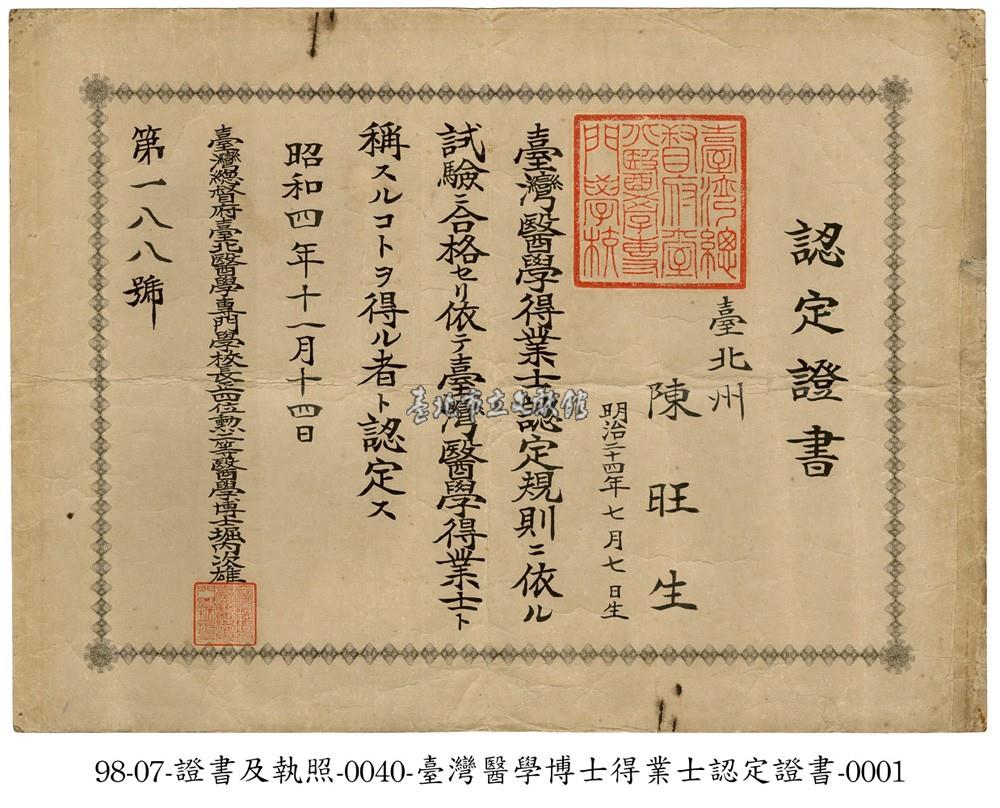 認定證書
臺北州
陳旺生
明治二十四年七月七日生
臺灣醫學得業士認定規則ニ依ル
試驗ニ合格セリ依テ臺灣醫學得業士ト
稱スルコトヲ得ル者ト認定ス
昭和四年十一月十四日
臺灣總督府臺北醫學專門學校長正四位勲二等醫學博士堀內次雄
第一八八號
臺灣總督府臺北醫學專門學校
臺北市立文獻館
98-07-證書及執照-0040-臺灣醫學博士得業士認定證書-0001